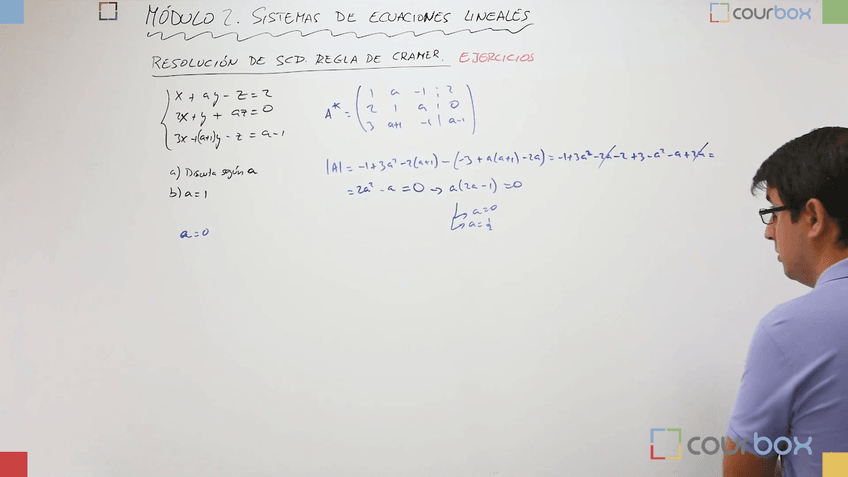 MÓDULO 2. SISTEMAS DE ECUACIONES LINEALES
courbox
RESOLUCIÓN DE SCD. REGLA DE CRAMER. EJERCICIOS
x + ay - z = 2
2x + y + az = 0
3x + (a+1)y - z = a - 1
A* = ( 1 a -1 | 2
2 1 a | 0
3 a+1 -1 | a-1 )
a) Discuta según a
b) a = 1
|A| = -1 + 3a² - 2(a+1) - (-3 + a(a+1) - 2a) = -1 + 3a² - 2a - 2 + 3 - a² - a + 2a =
= 2a² - a = 0 → a(2a - 1) = 0
a = 0
a = 1/2
a = 0
courbox